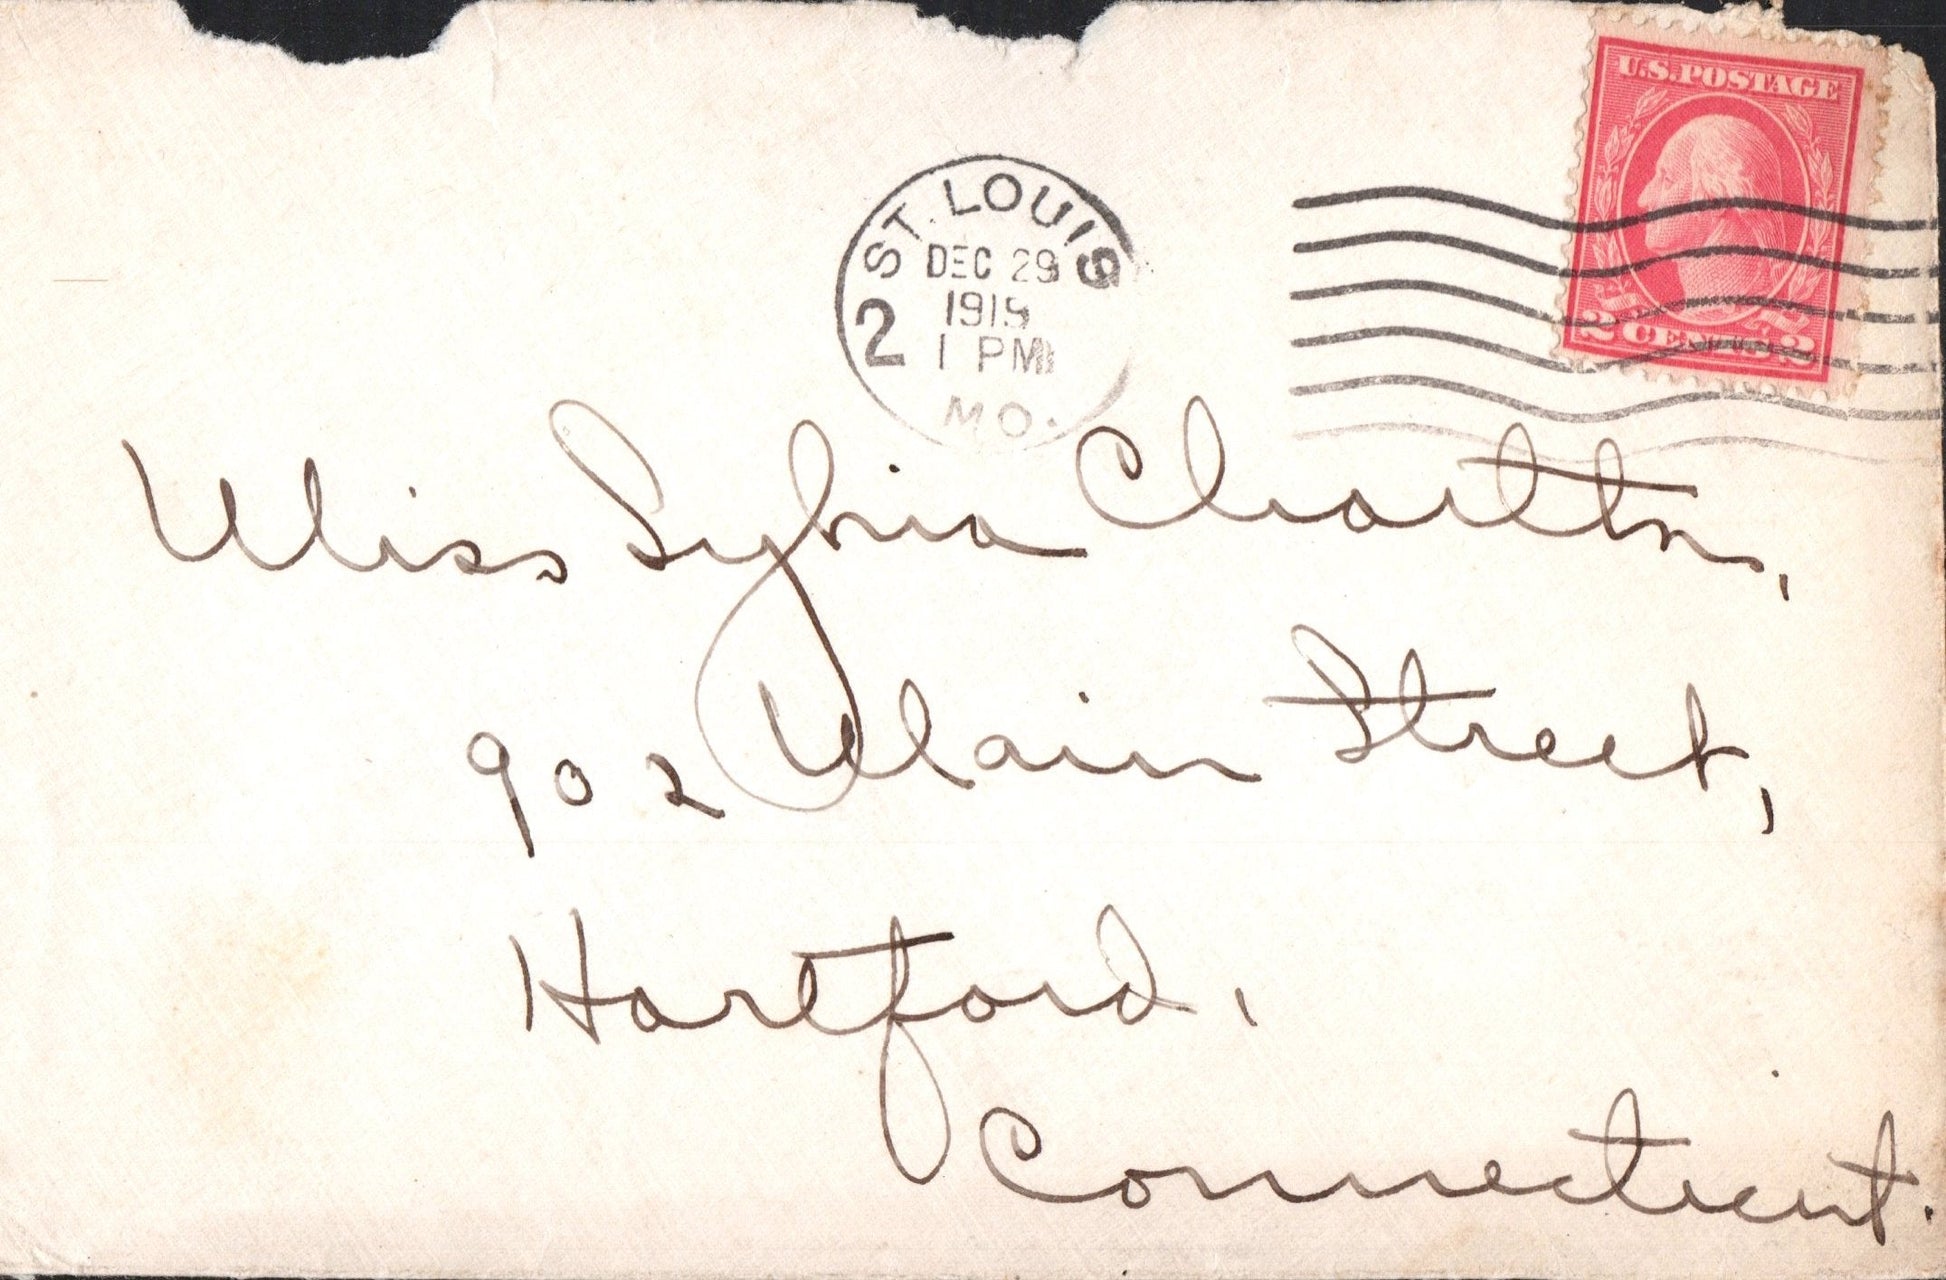 U.S. POSTAGE
2 CENTS 2
ST. LOUIS
DEC 29
1919
2
1 PM
MO.
Miss Sylvia Charlton,
902 Main Street,
Hartford,
Connecticut.